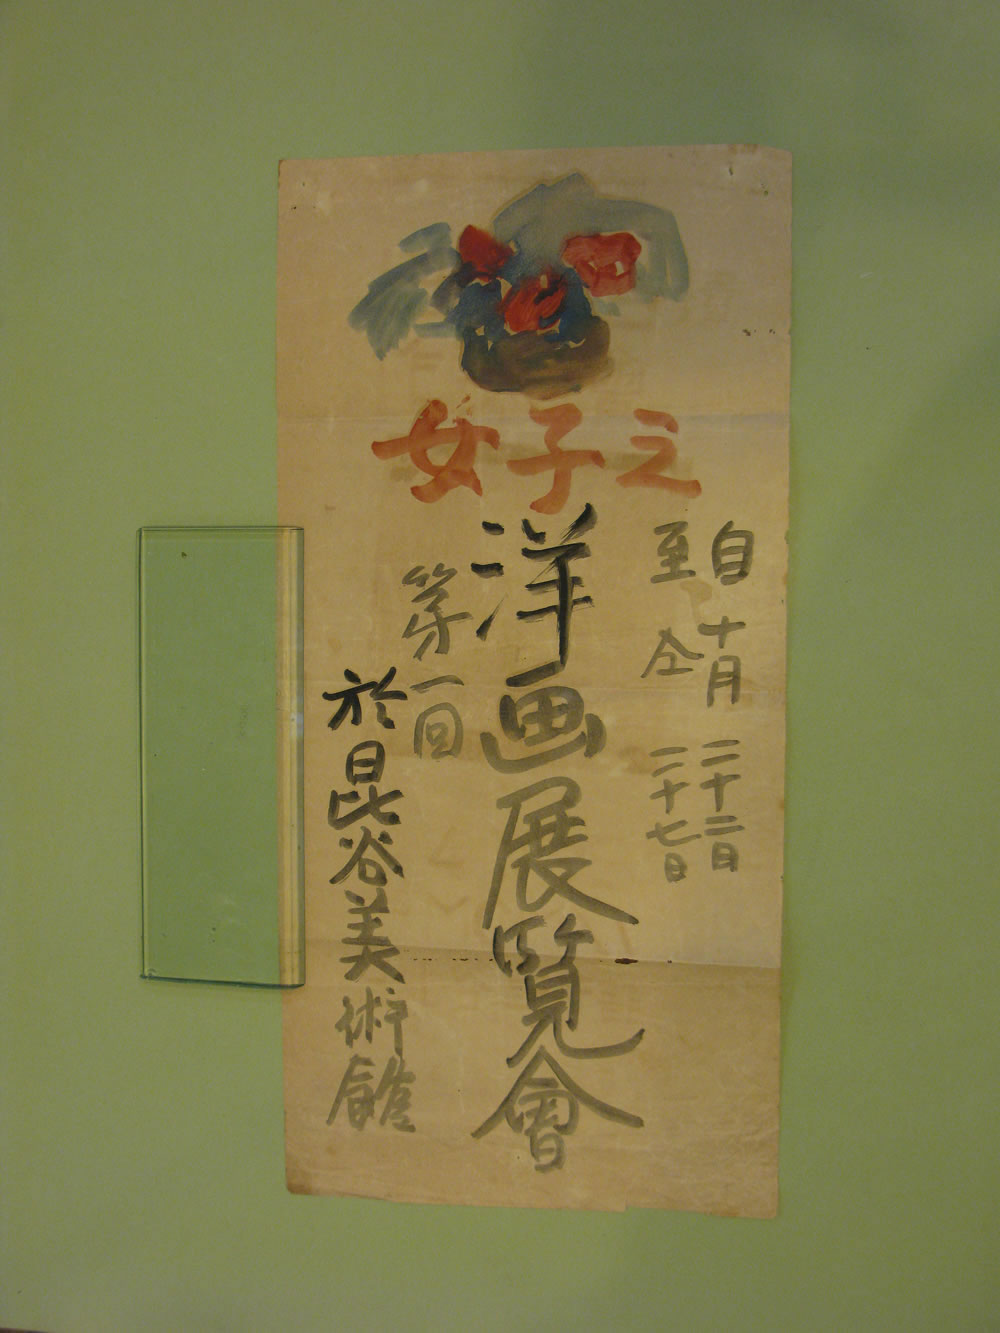 女子之
自十月二十二日
至仝二十七日
洋画展覧會
第一回
於昆谷美術館